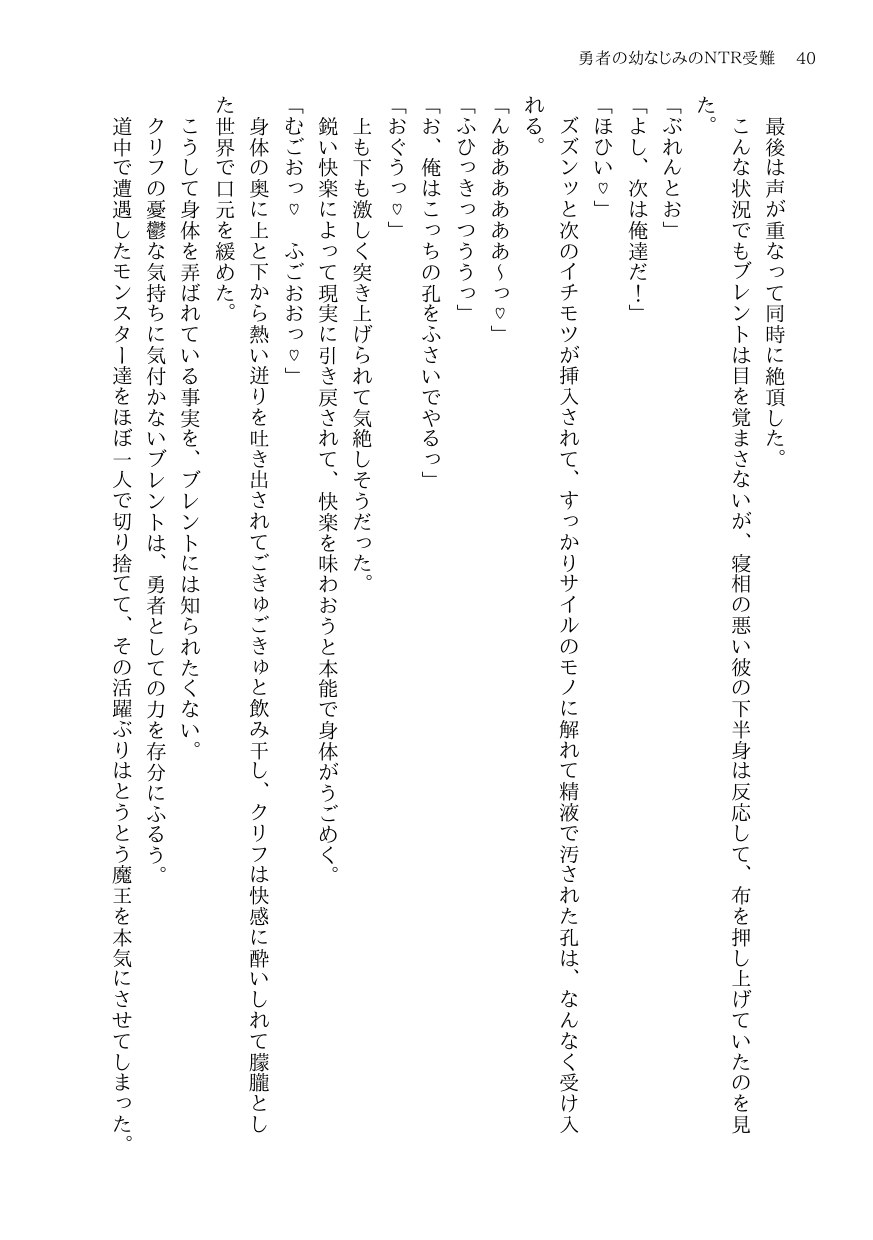 勇者の幼なじみのNTR受難 40
最後は声が重なって同時に絶頂した。
こんな状況でもブレントは目を覚まさないが、寝相の悪い彼の下半身は反応して、布を押し上げていたのを見
た。
「ぶれんとお」
「よし、次は俺達だ！」
「ほひい♡」
ズズンッと次のイチモツが挿入されて、すっかりサイルのモノに解れて精液で汚された孔は、なんなく受け入
れる。
「んああああああ～っ♡」
「ふひっきっつううっ」
「お、俺はこっちの孔をふさいでやるっ」
「おぐうっ♡」
上も下も激しく突き上げられて気絶しそうだった。
鋭い快楽によって現実に引き戻されて、快楽を味わおうと本能で身体がうごめく。
「むごおっ♡　ふごおおっ♡」
身体の奥に上と下から熱い迸りを吐き出されてごきゅごきゅと飲み干し、クリフは快感に酔いしれて朦朧とし
た世界で口元を緩めた。
こうして身体を弄ばれている事実を、ブレントには知られたくない。
クリフの憂鬱な気持ちに気付かないブレントは、勇者としての力を存分にふるう。
道中で遭遇したモンスター達をほぼ一人で切り捨てて、その活躍ぶりはとうとう魔王を本気にさせてしまった。